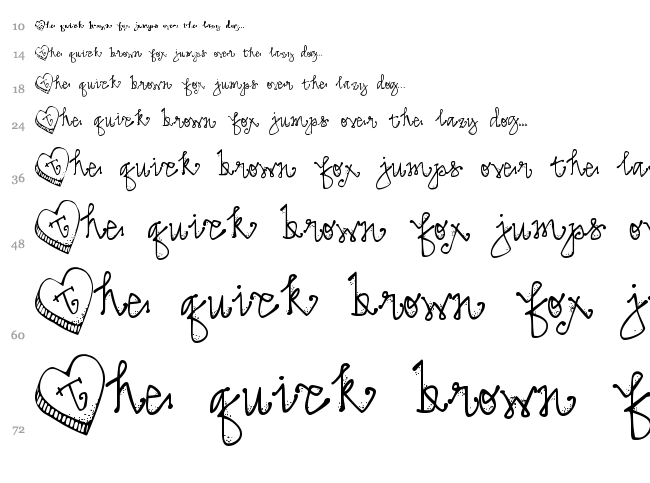 10 The quick brown fox jumps over the lazy dog...
14 The quick brown fox jumps over the lazy dog...
18 The quick brown fox jumps over the lazy dog...
24 The quick brown fox jumps over the lazy dog...
36 The quick brown fox jumps over the la
48 The quick brown fox jumps ov
60 The quick brown fox j
72 The quick brown f